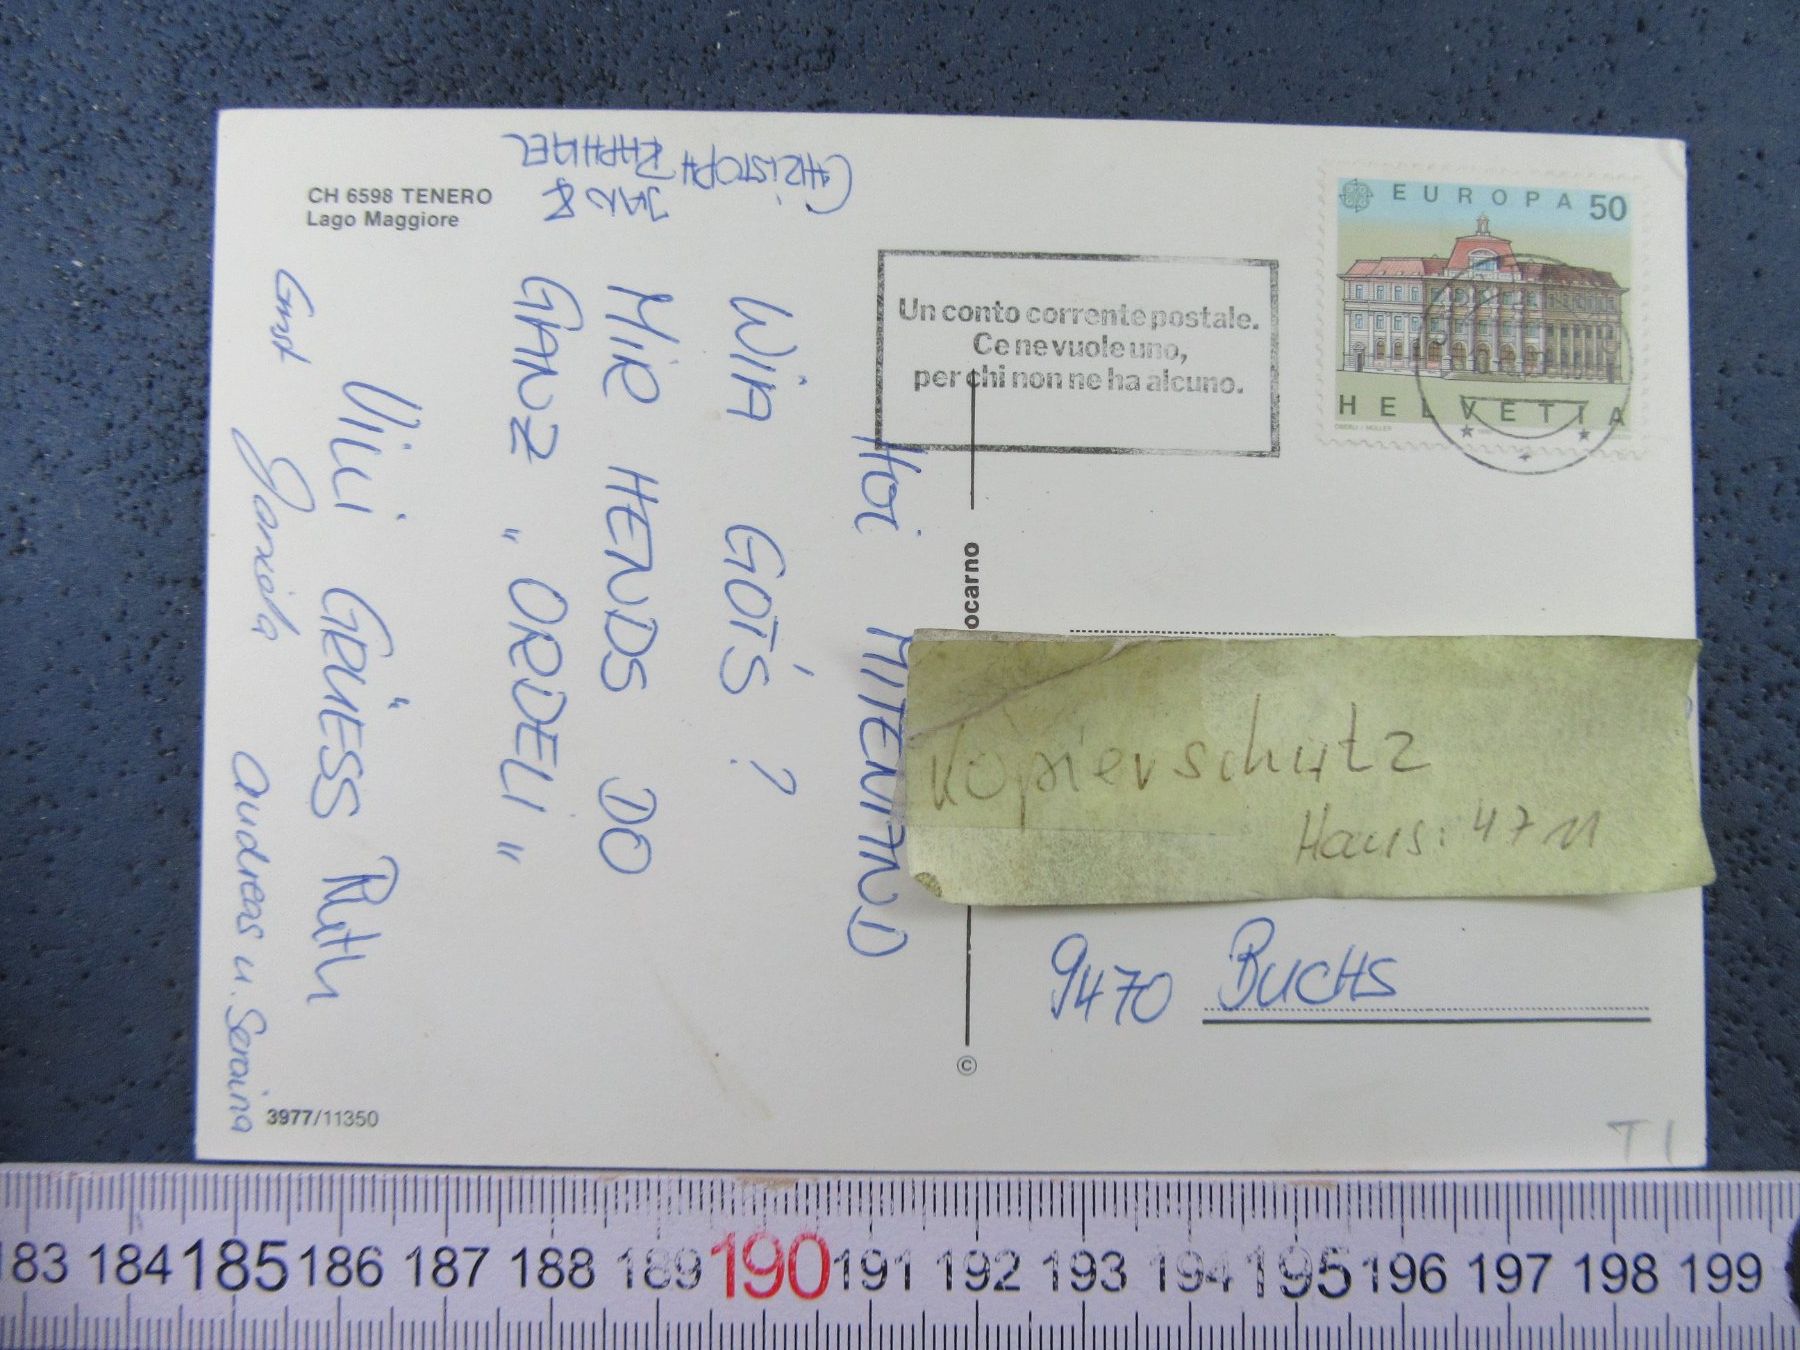 CH 6598 TENERO
Lago Maggiore
EUROPA 50
HELVETIA
Un conto corrente postale.
Ce ne vuole uno,
per chi non ne ha alcuno.
HOI MITENAND
WIA GOT'S?
MIR HENDS DO
GANZ "ORDELI"
VILI GRÜESS Ruth
Andreas u. Seraina
CHRISTOPH
JAN &
RAPHAEL
ocarno
Kopierschutz
Haus: 4711
9470 BUCHS
©
3977/11350
TI
183 184 185 186 187 188 189 190 191 192 193 194 195 196 197 198 199